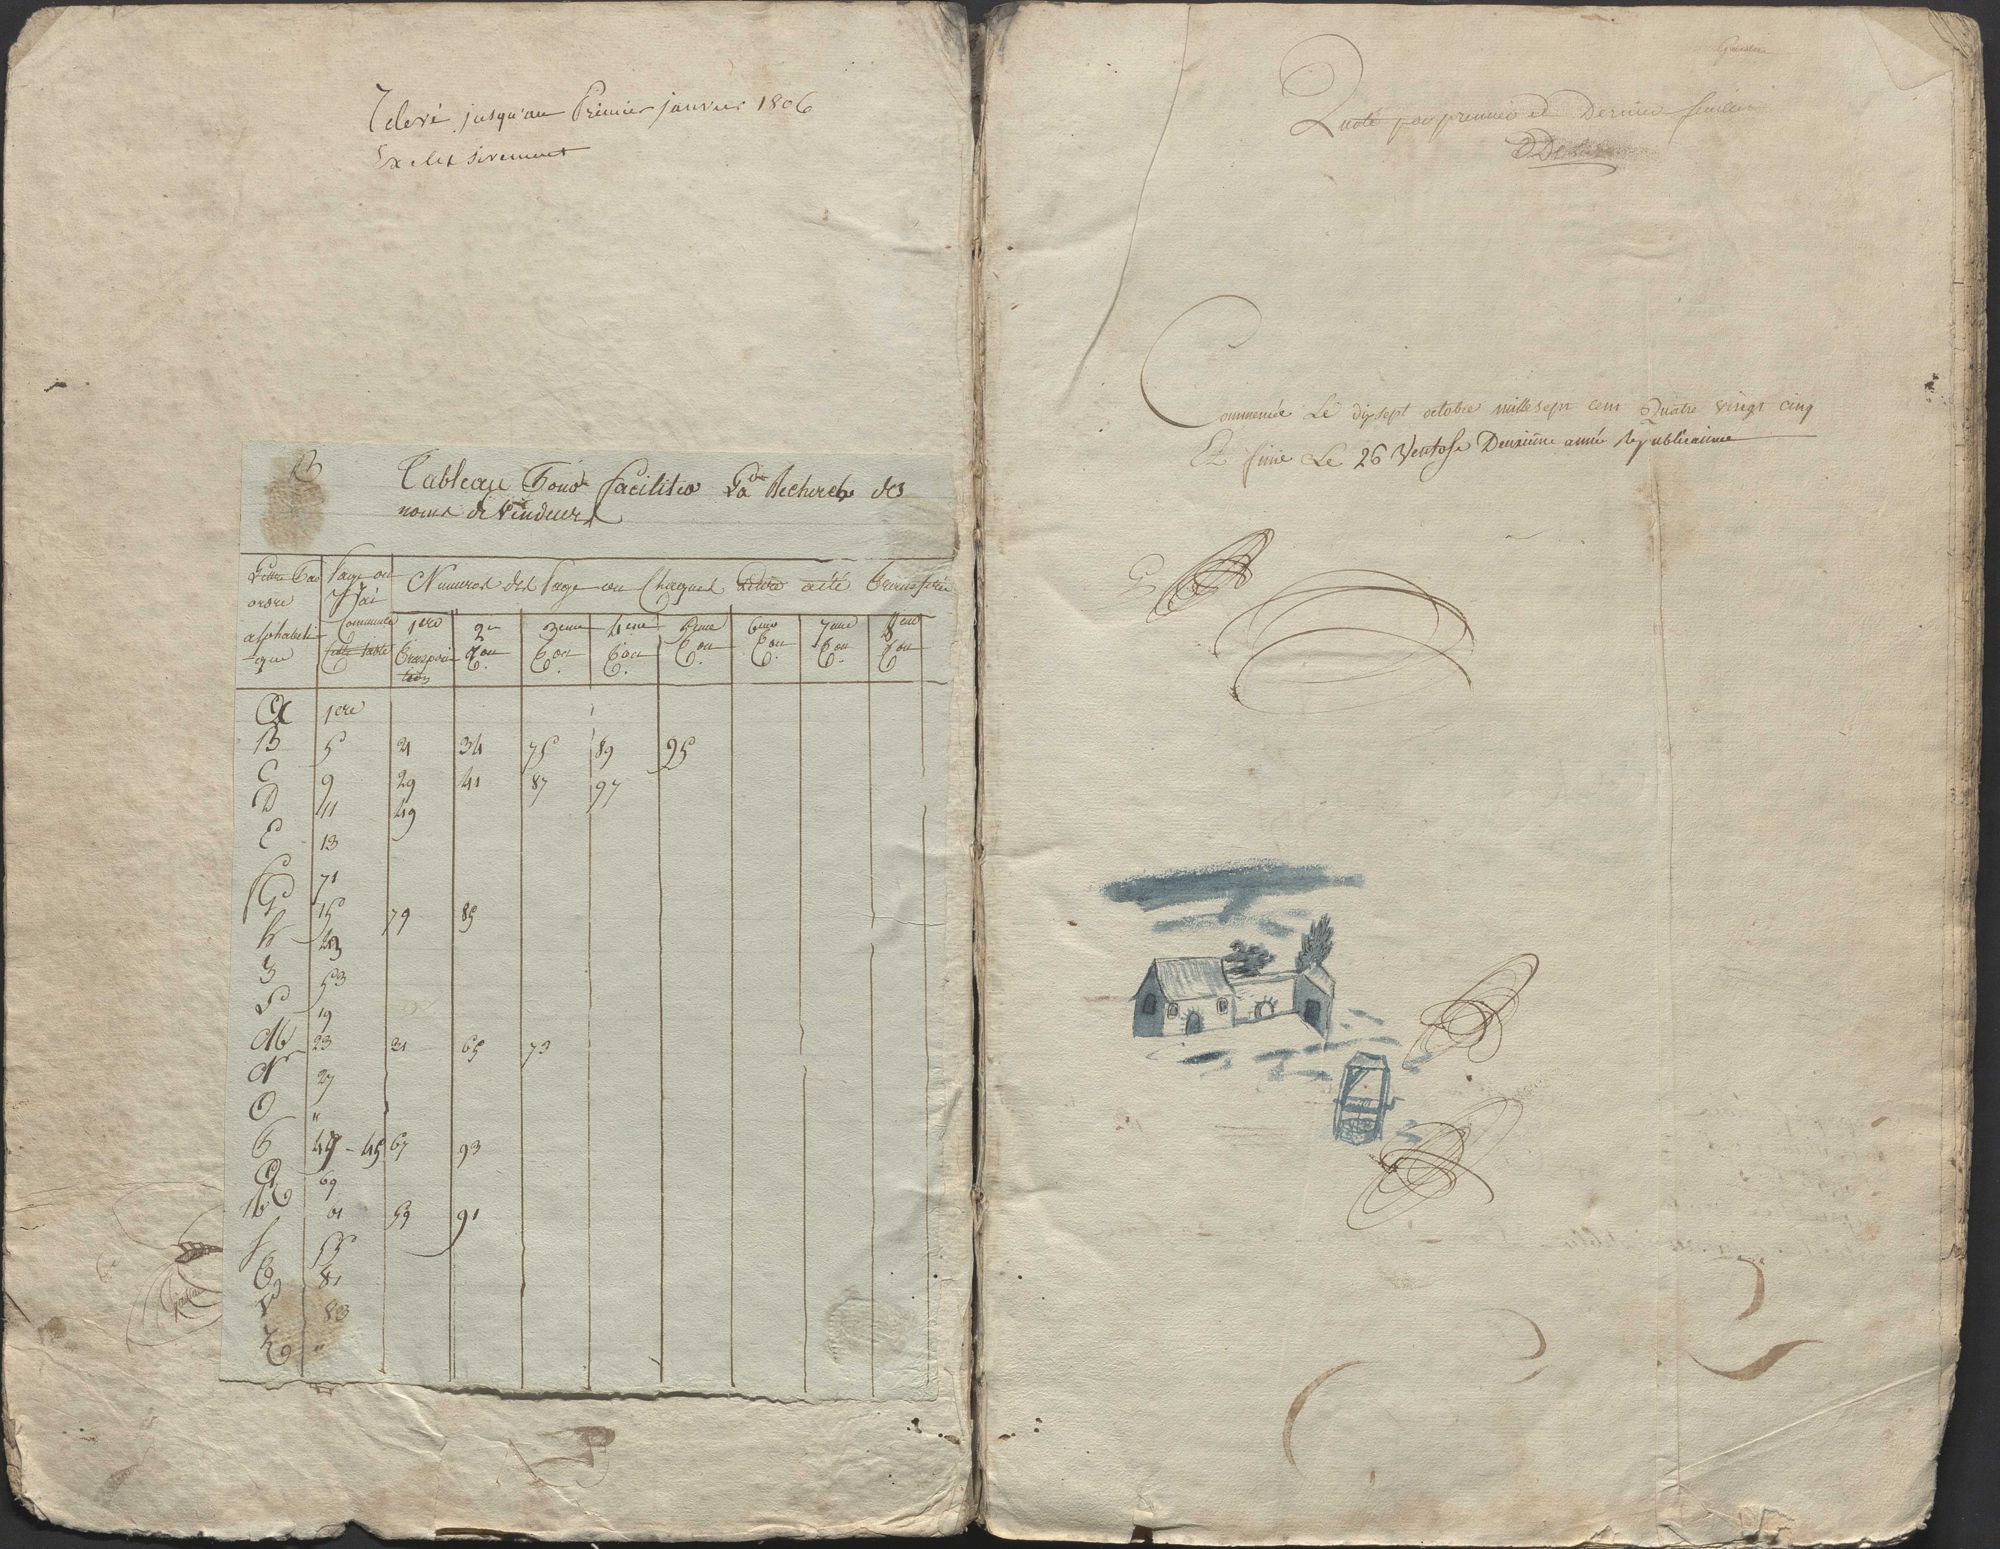 Relevé jusqu'au Premier janvier 1806
Exclusivement
Tableau Pour faciliter La Recherche des
noms de Vendeurs
Lettre Par ordre alphabetique
Page où J'ai Commencé cette table
Numeros des Page ou Chaques Lettre a été Transferée
1ere Transposition
2e T.on
3eme T.on
4eme T.on
5eme T.on
6eme T.on
7eme T.on
8eme T.on
A 1ere
B 5 21 34 75 89 95
C 9 29 41 87 97
D 11 49
E 13
F 71
G 15 79 85
h
J 53
L 19
M 23 31 65 73
N 27
O "
P 45 67 93
Q 69
R 59 91
S 55
T 81
V 83
Z "
Quoté par premier et Dernier feuillet
Commencée Le dixsept octobre mille sept cent Quatre vingt cinq
Et finie Le 26 Ventose Deuxieme année Republicainne